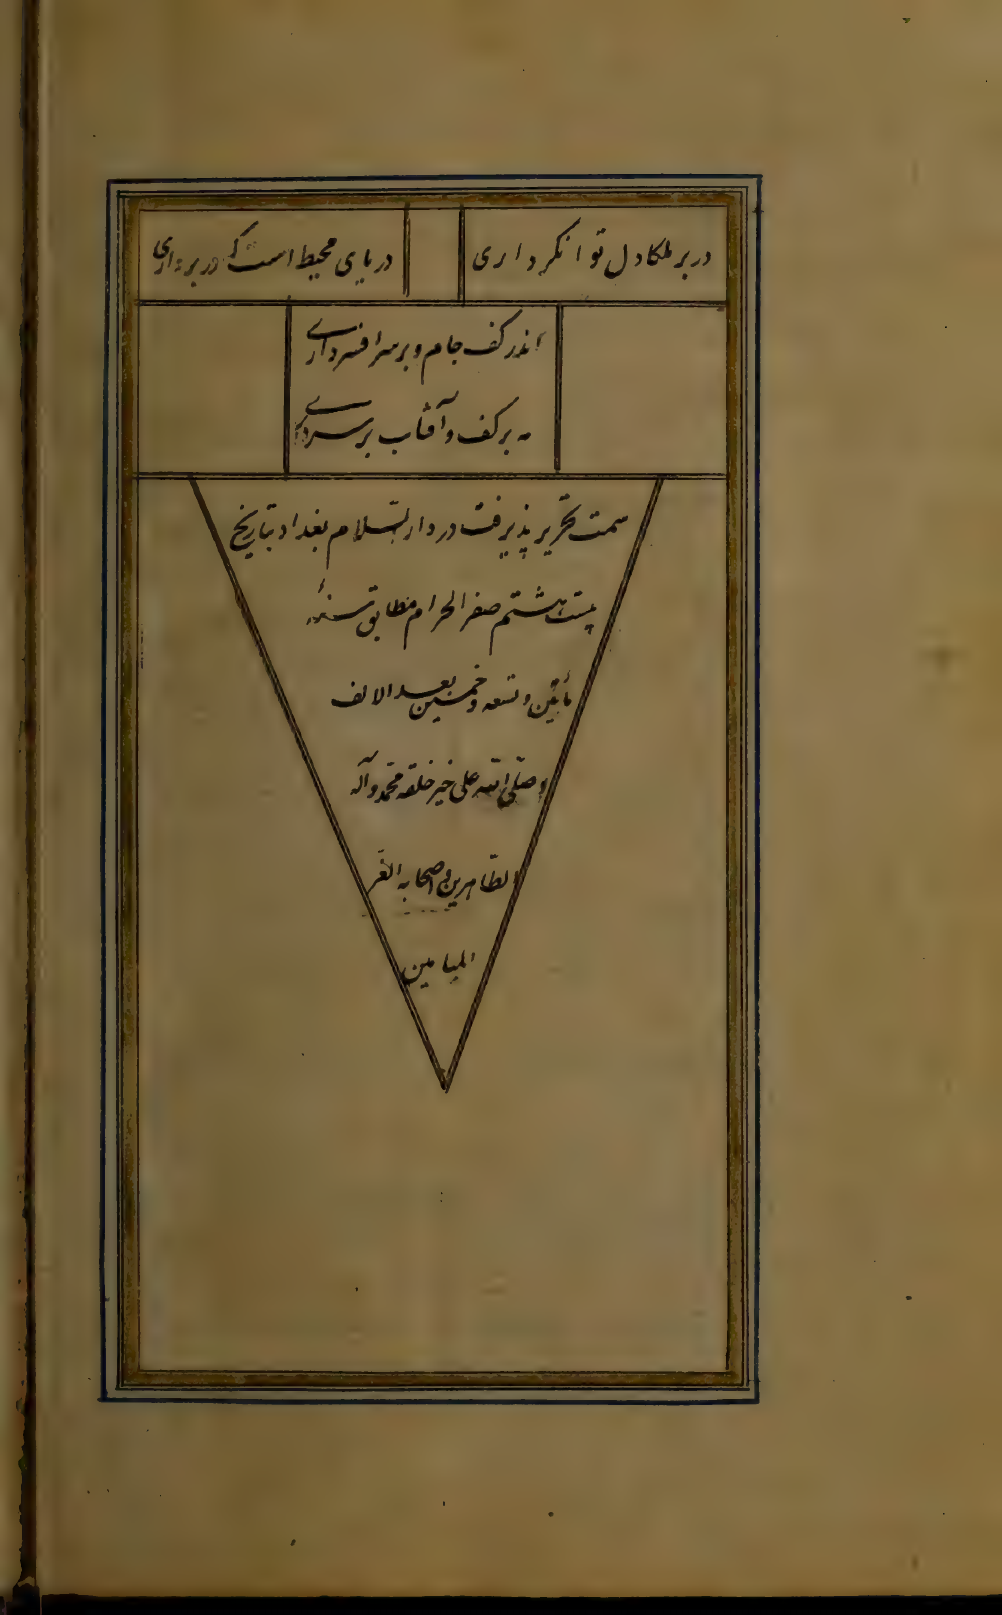 در بر ملکا دل توانگر داری
دریای محیط است که در بر داری
اندر کف جام و بر سر افسر داری
مه بر کف و آفتاب بر سر داری
سمت تحریر پذیرفت در دار السّلام بغداد بتاریخ
بیست هشتم صفر الحرام مطابق سنهٔ
مأتین و تسعه و خمسین بعد الالف
و صلّی الله علی خیر خلقه محمّد و آله
الطّاهرین و اصحابه الغرّ
المیامین